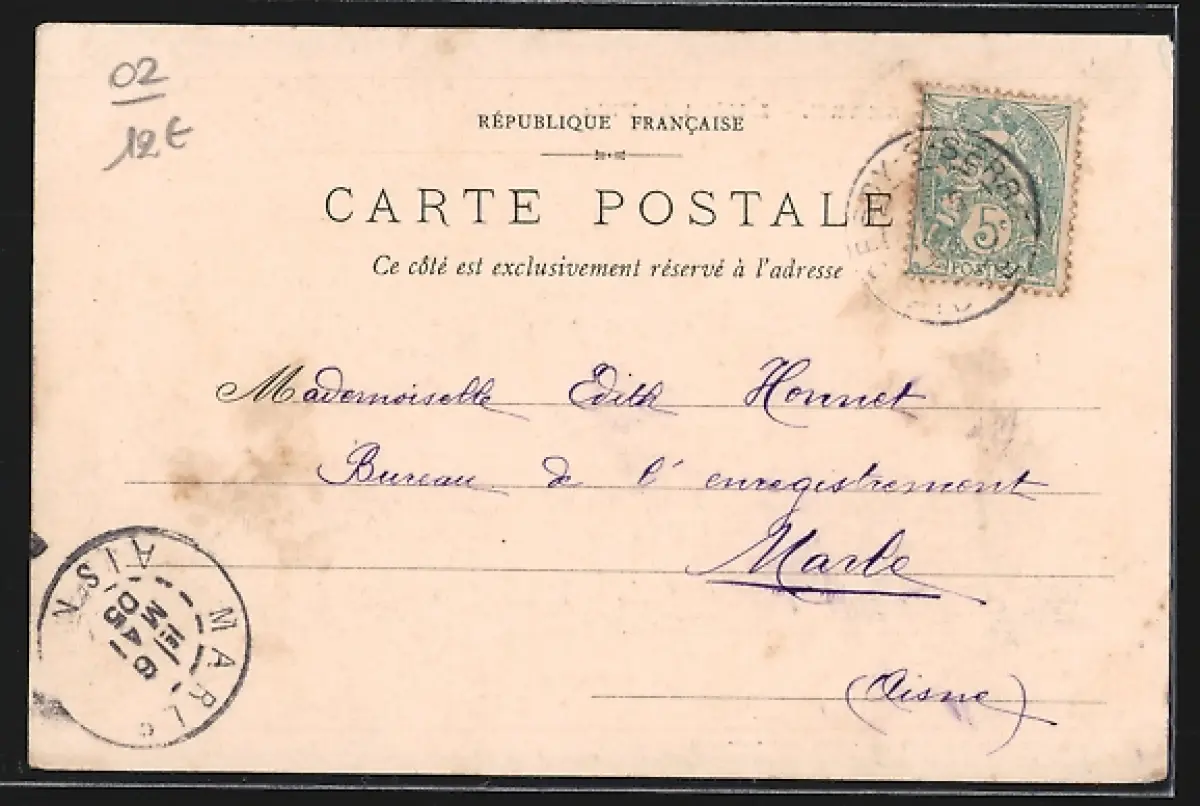 02
12€
RÉPUBLIQUE FRANÇAISE
CARTE POSTALE
Ce côté est exclusivement réservé à l'adresse
5c
POSTES
Mademoiselle Edith Honnet
Bureau de l'enregistrement
Marle
(Aisne)
MARLE
AISN
6
MAI
05